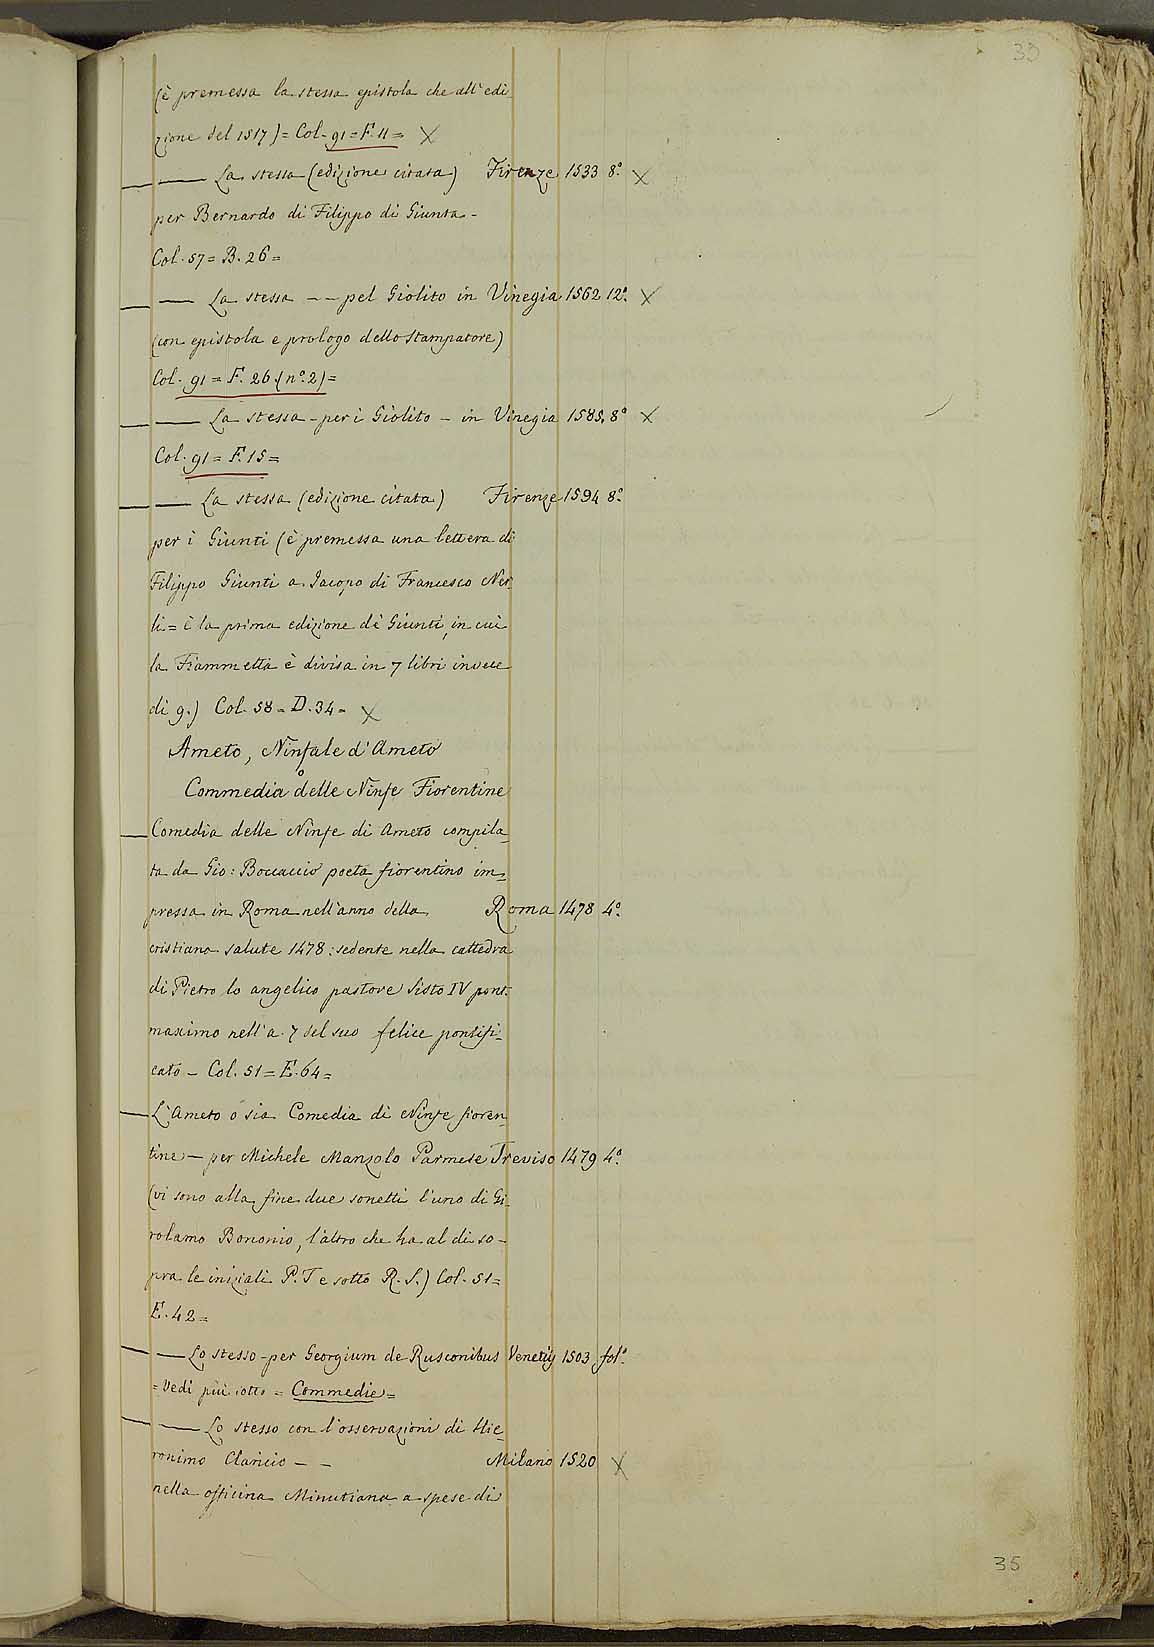 33
(è premessa la stessa epistola che all'edi-
zione del 1517) = Col. 91 = F. 11 = X
—— La stessa (edizione citata) Firenze 1533 8.º X
per Bernardo di Filippo di Giunta -
Col. 57 = B. 26 =
—— La stessa -- pel Giolito in Vinegia 1562 12.º X
(con epistola e prologo dello stampatore)
Col. 91 = F. 26 (nº. 2) =
—— La stessa - per i Giolito - in Vinegia 1585. 8º X
Col. 91 = F. 15 =
—— La stessa (edizione citata) Firenze 1594 8.º
per i Giunti (è premessa una lettera di
Filippo Giunti a Jacopo di Francesco Ner-
li = è la prima edizione dè Giunti, in cui
la Fiammetta è divisa in 7 libri invece
di 9.) Col. 58 = D. 34 = X
Ameto, Ninfale d'Ameto
o
Commedia delle Ninfe Fiorentine
— Comedia delle Ninfe di Ameto compila-
ta da Gio: Boccaccio poeta fiorentino im-
pressa in Roma nell'anno della Roma 1478 4º.
cristiana salute 1478: sedente nella cattedra
di Pietro lo angelico pastore Sisto IV pont.
maximo nell'a. 7 del suo felice pontifi-
cato - Col. 51 = E. 64 =
— L'Ameto o sia Comedia di Ninfe fioren-
tine - per Michele Manzolo Parmese Treviso 1479 4º.
(vi sono alla fine due sonetti l'uno di Gi-
rolamo Bononio, l'altro che ha al di so-
pra le iniziali P. T e sotto R. S.) Col. 51 =
E. 42 =
—— Lo stesso - per Georgium de Rusconibus Venetijs 1503 folº.
= Vedi più sotto = Commedie =
—— Lo stesso con l'osservazioni di Hie-
ronimo Claricio - - Milano 1520 X
nella officina Minutiana a spese di
35